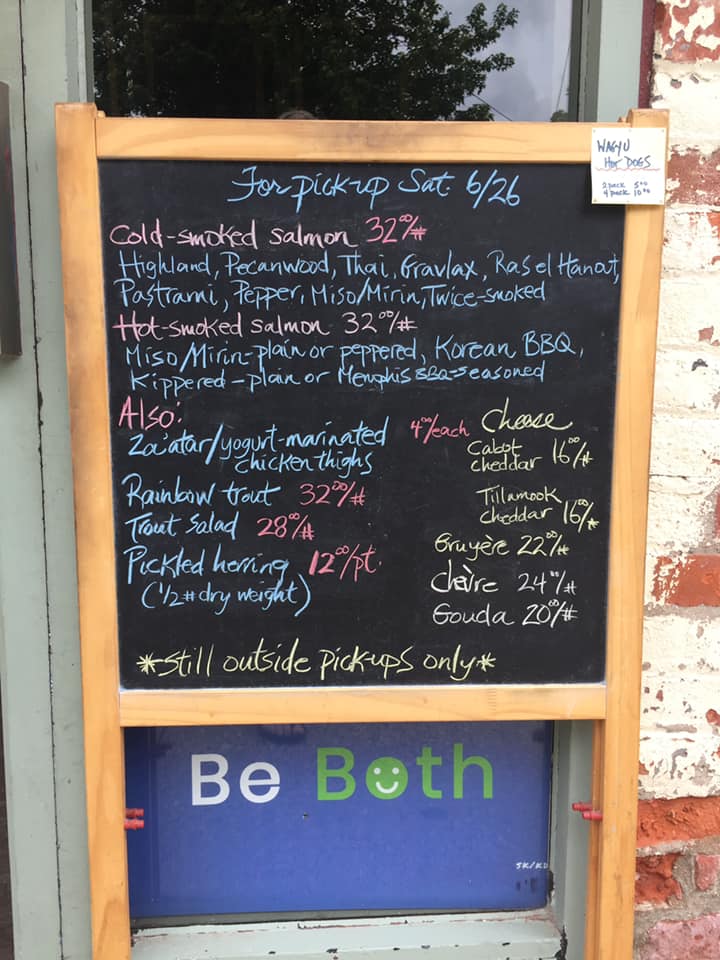 WAGYU
HOT DOGS
2 pack 5⁰⁰
4 pack 10⁰⁰
For pick-up Sat. 6/26
Cold-smoked salmon 32⁰⁰/#
Highland, Pecanwood, Thai, Gravlax, Ras el Hanout,
Pastrami, Pepper, Miso/Mirin, Twice-smoked
Hot-smoked salmon 32⁰⁰/#
Miso/Mirin-plain or peppered, Korean BBQ,
Kippered-plain or Memphis BBQ-seasoned
Also:
Za'atar/yogurt-marinated 4⁰⁰/each
chicken thighs
Rainbow trout 32⁰⁰/#
Trout Salad 28⁰⁰/#
Pickled herring 12⁰⁰/pt.
(1/2# dry weight)
Cheese
Cabot
cheddar 16⁰⁰/#
Tillamook
cheddar 16⁰⁰/#
Gruyère 22⁰⁰/#
chèvre 24⁰⁰/#
Gouda 20⁰⁰/#
*Still outside pick-ups only*
Be Both